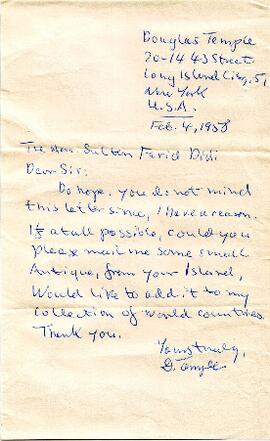 Douglas Temple
20-14 43 Street
Long Island City, 5,
New York
U.S.A.
Feb. 4, 1958
The Hon. Sultan Farid Didi
Dear Sir:
Do hope. you do not mind
this letter since, I have a reason.
If at all possible, could you
please mail me some small
Antique, from your Island,
Would like to add it to my
collection of world countries.
Thank you.
Yours truly,
D. Temple